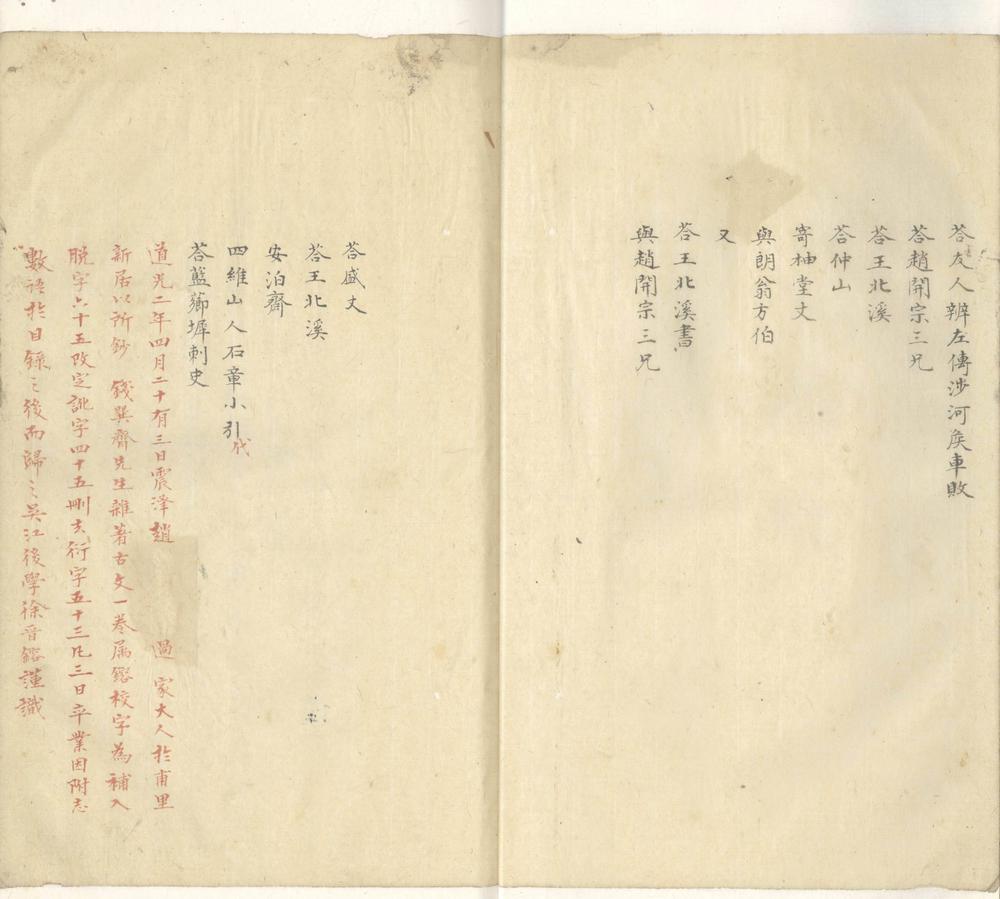 荅友人辨左傳涉河矦車敗
荅趙開宗三兄
荅王北溪
荅仲山
寄柚堂丈
與朗翁方伯
又
荅王北溪書
與趙開宗三兄
荅盛丈
荅王北溪
安泊齋
四維山人石章小引代
荅藍薌墀刺史
道光二年四月二十有三日震澤趙 過 家大人於甫里
新居以所鈔 錢巽齋先生雜著古文一卷属鎔校字為補入
脱字六十五改定訛字四十五刪去衍字五十三凡三日卒業因附志
數語於目録之後而歸之吴江後學徐晋鎔謹識